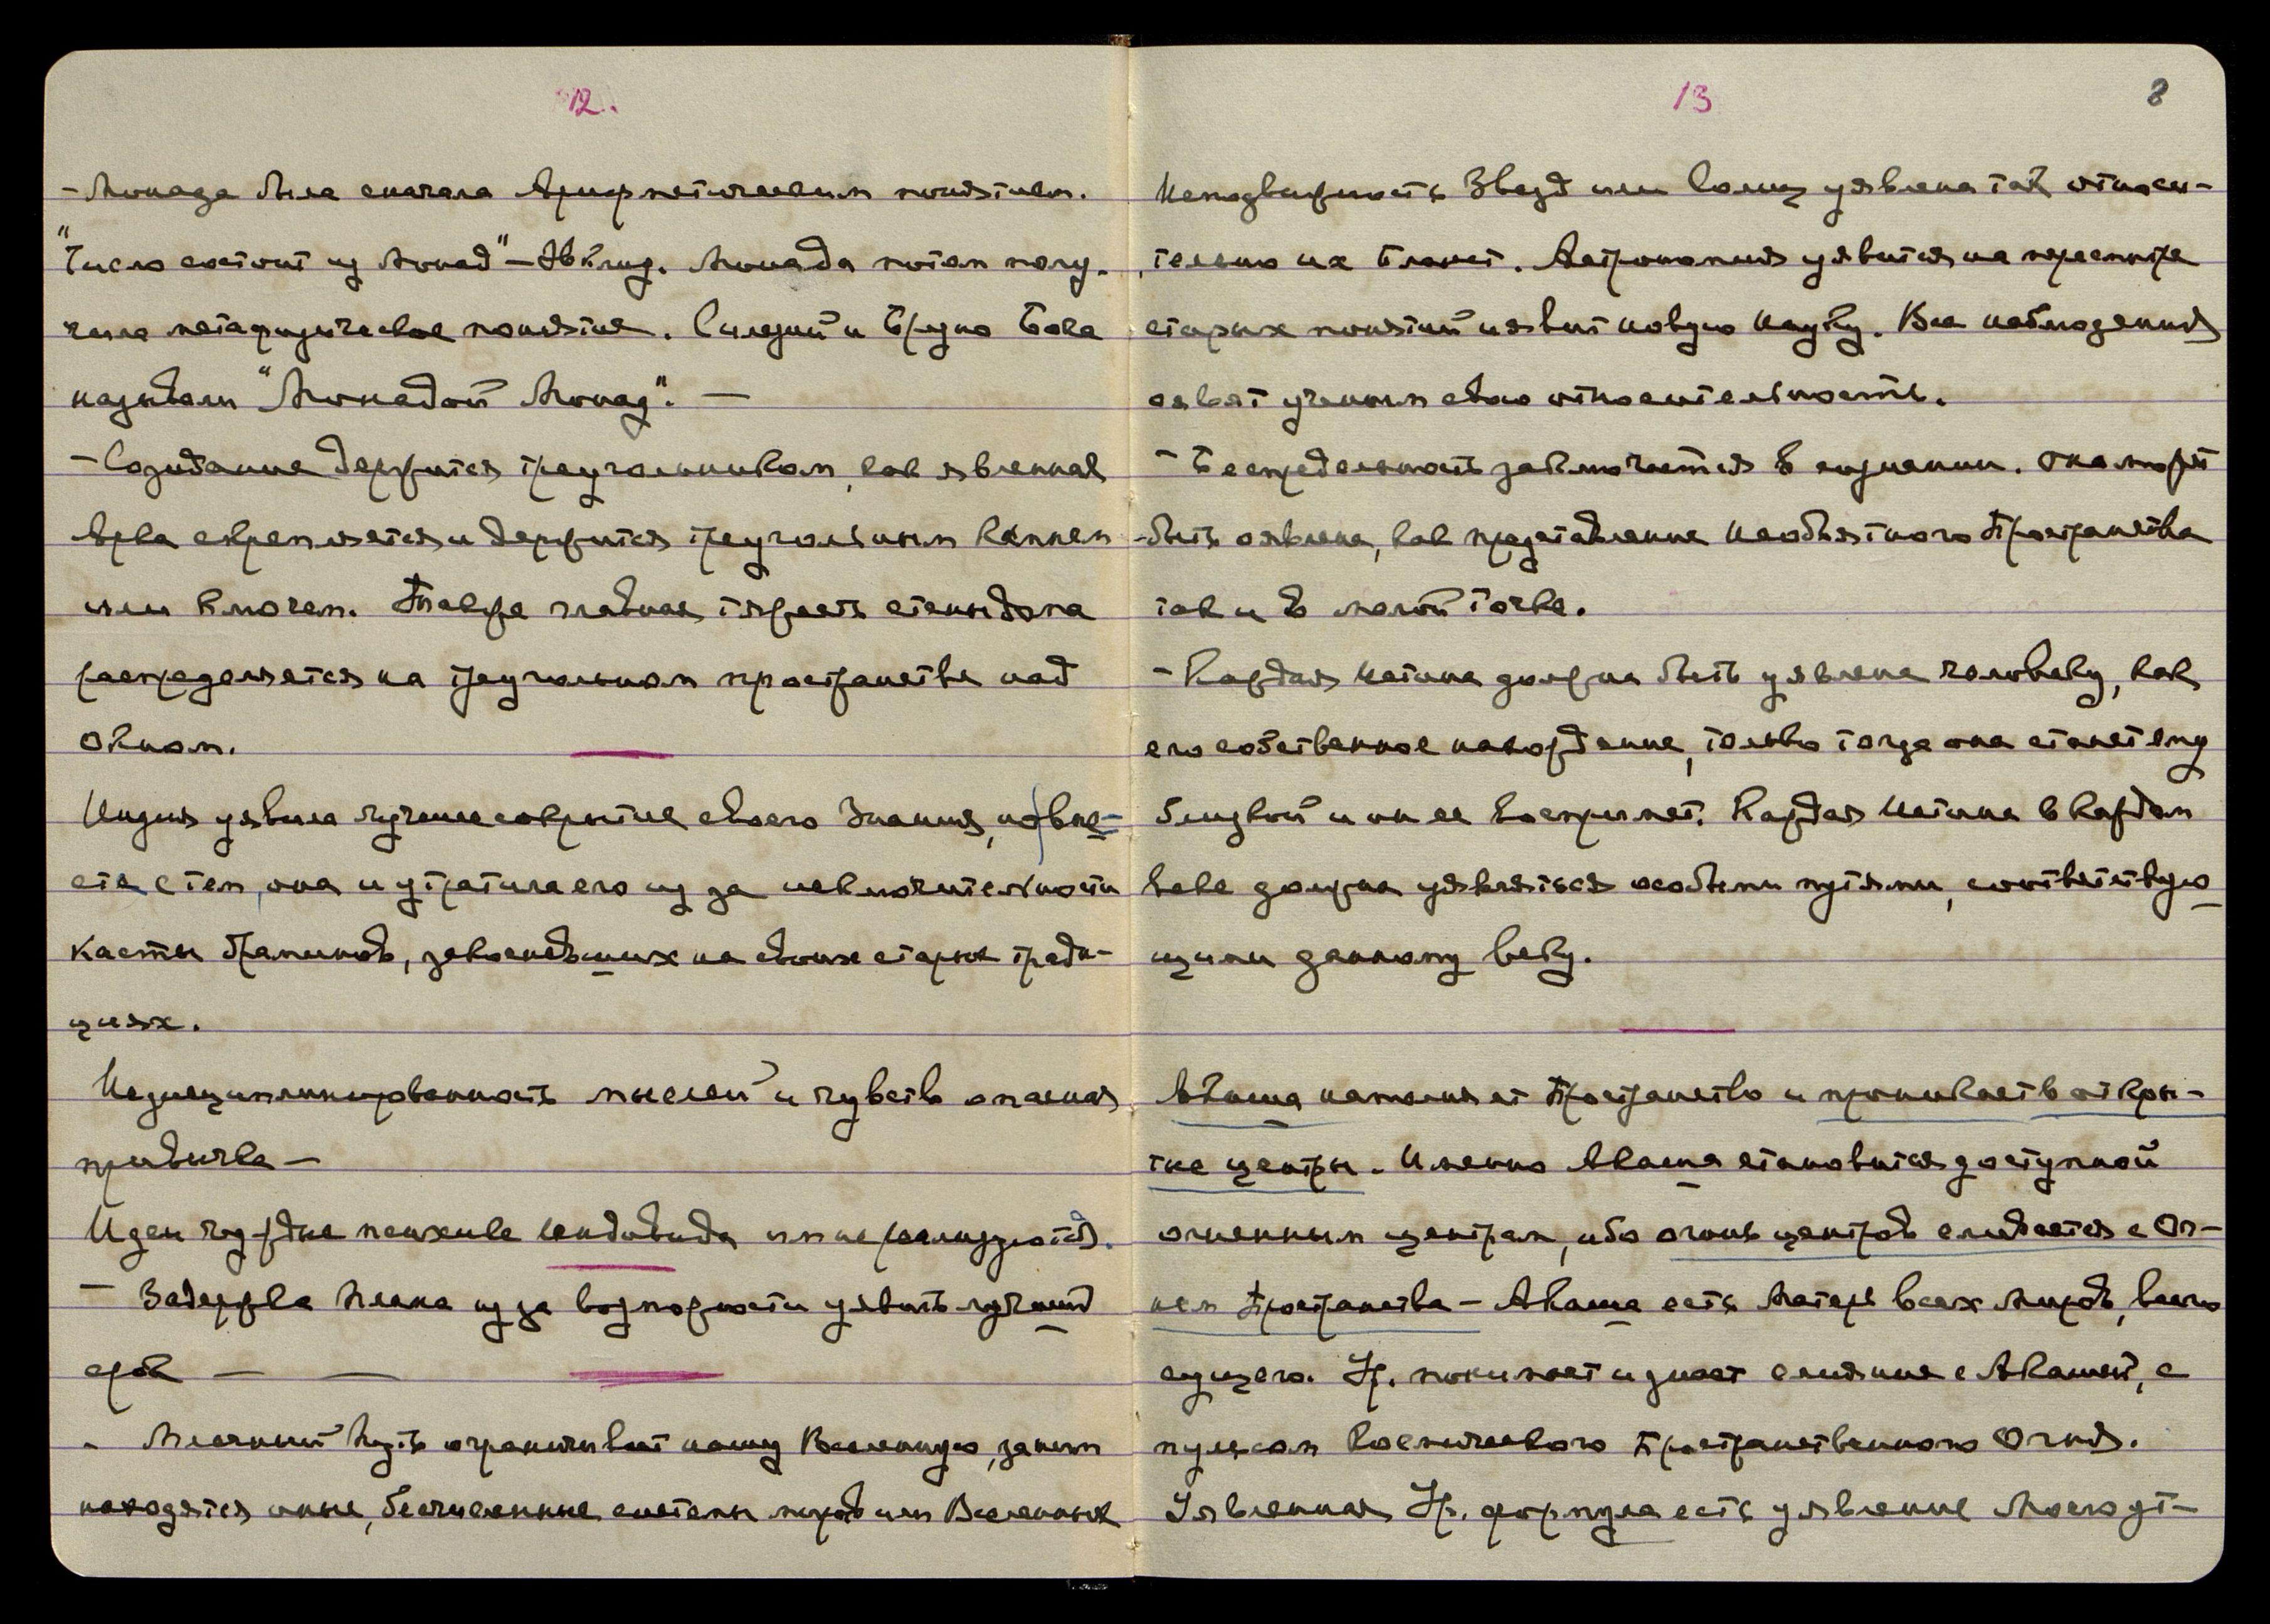 12.
- Монада была сначала Арифметическим понятием.
"Число состоит из Монад" – Эвклид. Монада потом полу-
чила метафизическое понятие. Синезий и Бруно Бога
называли "Монадой Монад". –
- Созидание держится треугольником, как явленная
Арка скрепляется и держится треугольным Камнем
или Ключем. Также главная тяжесть стены дома
распределяется на треугольном пространстве над
окном.
Индия уявила лучшее сокрытие своего Знания, но вме-
сте с тем, она и утратила его из за исключительности
касты браминов, закосневших на своих старых тради-
циях.
Недисциплинированность мыслей и чувств опасная
привычка –
Идеи чуждые психике индивида им не реализуются.
– Задержка Плана из за возможности уявить лучший
срок – –
. Млечный Путь ограничивает нашу Вселенную, за ним
находятся иные, бесчисленные системы миров или Вселенных
13
8
Неподвижность Звезд или Солнц уявлена так относи-
тельно их Планет. Астрономия уявится на пересмотре
старых понятий и явит новую Науку. Все наблюдения
оявят ученым свою относительность.
- Беспредельность заключается в сознании. Она может
быть оявлена, как представление необъятного Пространства
так и в малой точке.
- Каждая Истина должна быть уявлена человеку, как
его собственное нахождение, только тогда она станет ему
близкой и он ее воспримет. Каждая Истина в каждом
веке должна уявляться особыми путями, соответствую
щими данному веку.
Акаша наполняет Пространство и проникает в откры-
тые центры. Именно Акаша становится доступной
огненным центрам, ибо огонь центров сливается с Ог-
нем Пространства – Акаша есть Матерь всех Миров, всего
сущего. Ур. понимает и знает слияние с Акашей, с
пульсом Космического Пространственного Огня.
Уявленная Ур. формула есть уявление Моего ут-